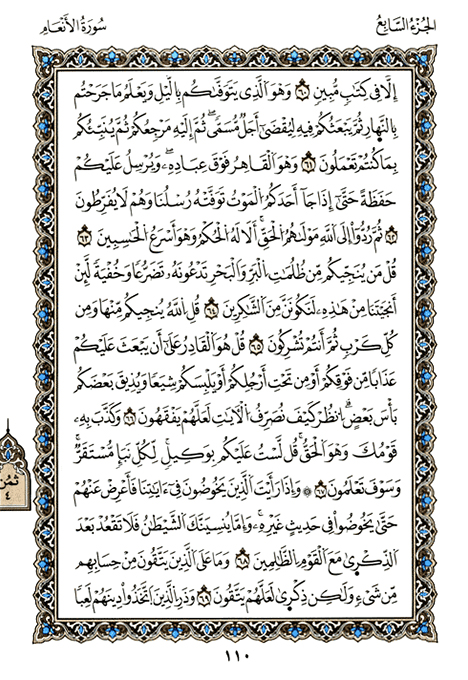 الجُزْءُ السَّابِعُ
سُورَةُ الأَنْعَام
إِلَّا فِي كِتَٰبٍ مُّبِينٍ ٦٠ وَهُوَ ٱلَّذِي يَتَوَفَّىٰكُم بِٱلَّيْلِ وَيَعْلَمُ مَا جَرَحْتُم
بِٱلنَّهَارِ ثُمَّ يَبْعَثُكُمْ فِيهِ لِيُقْضَىٰٓ أَجَلٌ مُّسَمًّى ثُمَّ إِلَيْهِ مَرْجِعُكُمْ ثُمَّ يُنَبِّئُكُم
بِمَا كُنتُمْ تَعْمَلُونَ ٦١ وَهُوَ ٱلْقَاهِرُ فَوْقَ عِبَادِهِۦ وَيُرْسِلُ عَلَيْكُمْ
حَفَظَةً حَتَّىٰٓ إِذَا جَآ أَحَدَكُمُ ٱلْمَوْتُ تَوَفَّتْهُ رُسُلُنَا وَهُمْ لَا يُفَرِّطُونَ
٦٢ ثُمَّ رُدُّوٓا۟ إِلَى ٱللَّهِ مَوْلَىٰهُمُ ٱلْحَقِّ أَلَا لَهُ ٱلْحُكْمُ وَهُوَ أَسْرَعُ ٱلْحَٰسِبِينَ ٦٣
قُلْ مَن يُنَجِّيكُم مِّن ظُلُمَٰتِ ٱلْبَرِّ وَٱلْبَحْرِ تَدْعُونَهُۥ تَضَرُّعًا وَخُفْيَةً لَّئِنْ
أَنجَيْتَنَا مِنْ هَٰذِهِۦ لَنَكُونَنَّ مِنَ ٱلشَّٰكِرِينَ ٦٤ قُلِ ٱللَّهُ يُنجِيكُم مِّنْهَا وَمِن
كُلِّ كَرْبٍ ثُمَّ أَنتُمْ تُشْرِكُونَ ٦٥ قُلْ هُوَ ٱلْقَادِرُ عَلَىٰٓ أَن يَبْعَثَ عَلَيْكُمْ
عَذَابًا مِّن فَوْقِكُمْ أَوْ مِن تَحْتِ أَرْجُلِكُمْ أَوْ يَلْبِسَكُمْ شِيَعًا وَيُذِيقَ بَعْضَكُم
بَأْسَ بَعْضٍ ٱنظُرْ كَيْفَ نُصَرِّفُ ٱلْءَايَٰتِ لَعَلَّهُمْ يَفْقَهُونَ ٦٦ وَكَذَّبَ بِهِۦ
قَوْمُكَ وَهُوَ ٱلْحَقُّ قُل لَّسْتُ عَلَيْكُم بِوَكِيلٍ لِّكُلِّ نَبَإٍ مُّسْتَقَرٌّ
وَسَوْفَ تَعْلَمُونَ ٦٧ وَإِذَا رَأَيْتَ ٱلَّذِينَ يَخُوضُونَ فِيٓ ءَايَٰتِنَا فَأَعْرِضْ عَنْهُمْ
حَتَّىٰ يَخُوضُوا۟ فِي حَدِيثٍ غَيْرِهِۦ وَإِمَّا يُنسِيَنَّكَ ٱلشَّيْطَٰنُ فَلَا تَقْعُدْ بَعْدَ
ٱلذِّكْرَىٰ مَعَ ٱلْقَوْمِ ٱلظَّٰلِمِينَ ٦٨ وَمَا عَلَى ٱلَّذِينَ يَتَّقُونَ مِنْ حِسَابِهِم
مِّن شَيْءٍ وَلَٰكِن ذِكْرَىٰ لَعَلَّهُمْ يَتَّقُونَ ٦٩ وَذَرِ ٱلَّذِينَ ٱتَّخَذُوا۟ دِينَهُمْ لَعِبًا
ثُمُن
٤
١١٠